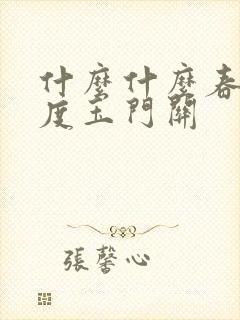 什麼什麼春
度玉門關
張馨心